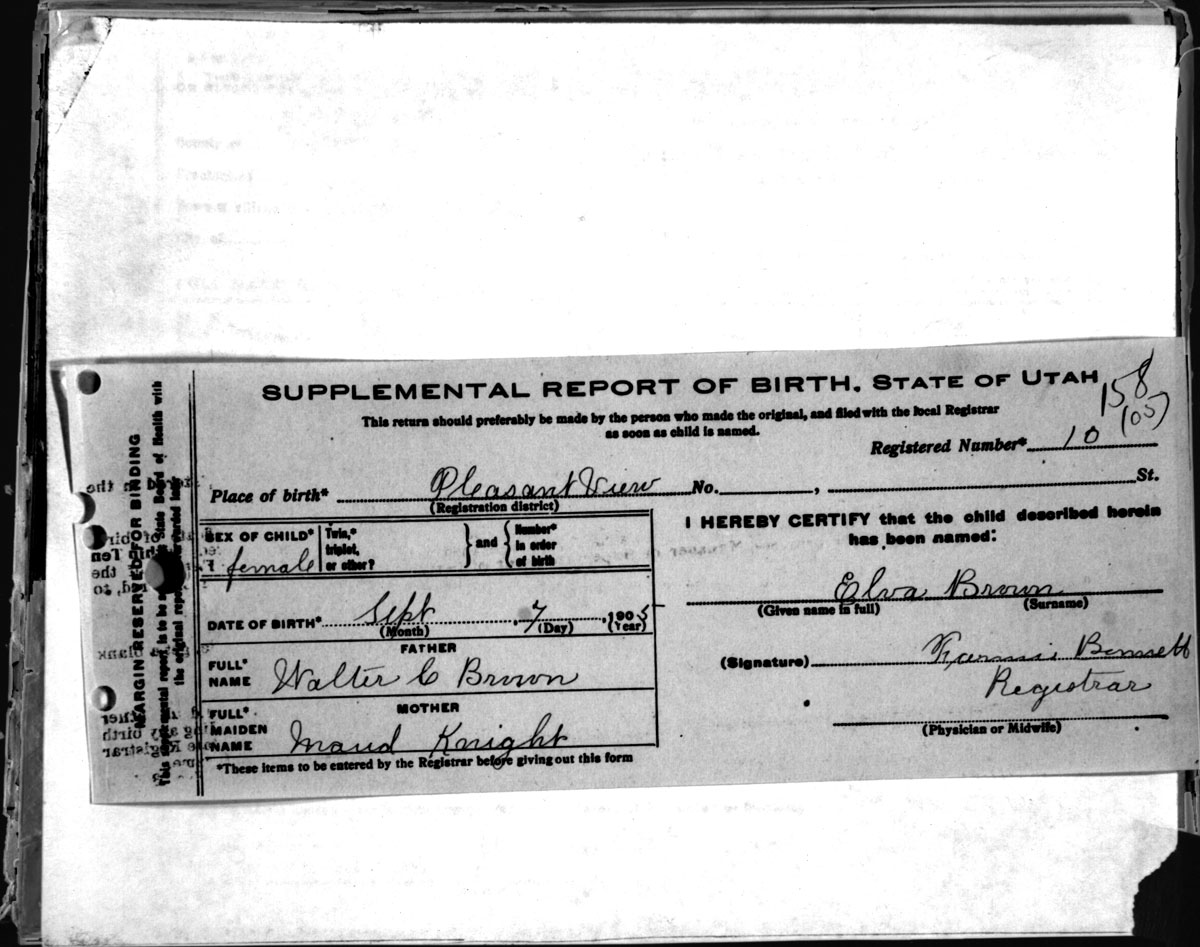 SUPPLEMENTAL REPORT OF BIRTH. STATE OF UTAH
158
(05)
This return should preferably be made by the person who made the original, and filed with the local Registrar
as soon as child is named.
Registered Number* 10
Place of birth* Pleasant View No. , St.
(Registration district)
MARGIN RESERVED FOR BINDING
This supplemental report is to be State Board of Health with
the original report forwarded later
SEX OF CHILD* female
Twin,* triplet, or other?
and
Number* in order of birth
DATE OF BIRTH* Sept 7, 1905
(Month) (Day) (Year)
FATHER
FULL* NAME Walter C Brown
MOTHER
FULL* MAIDEN NAME Maud Knight
*These items to be entered by the Registrar before giving out this form
I HEREBY CERTIFY that the child described herein
has been named:
Elva Brown
(Given name in full) (Surname)
(Signature) Bennett
Registrar
(Physician or Midwife)